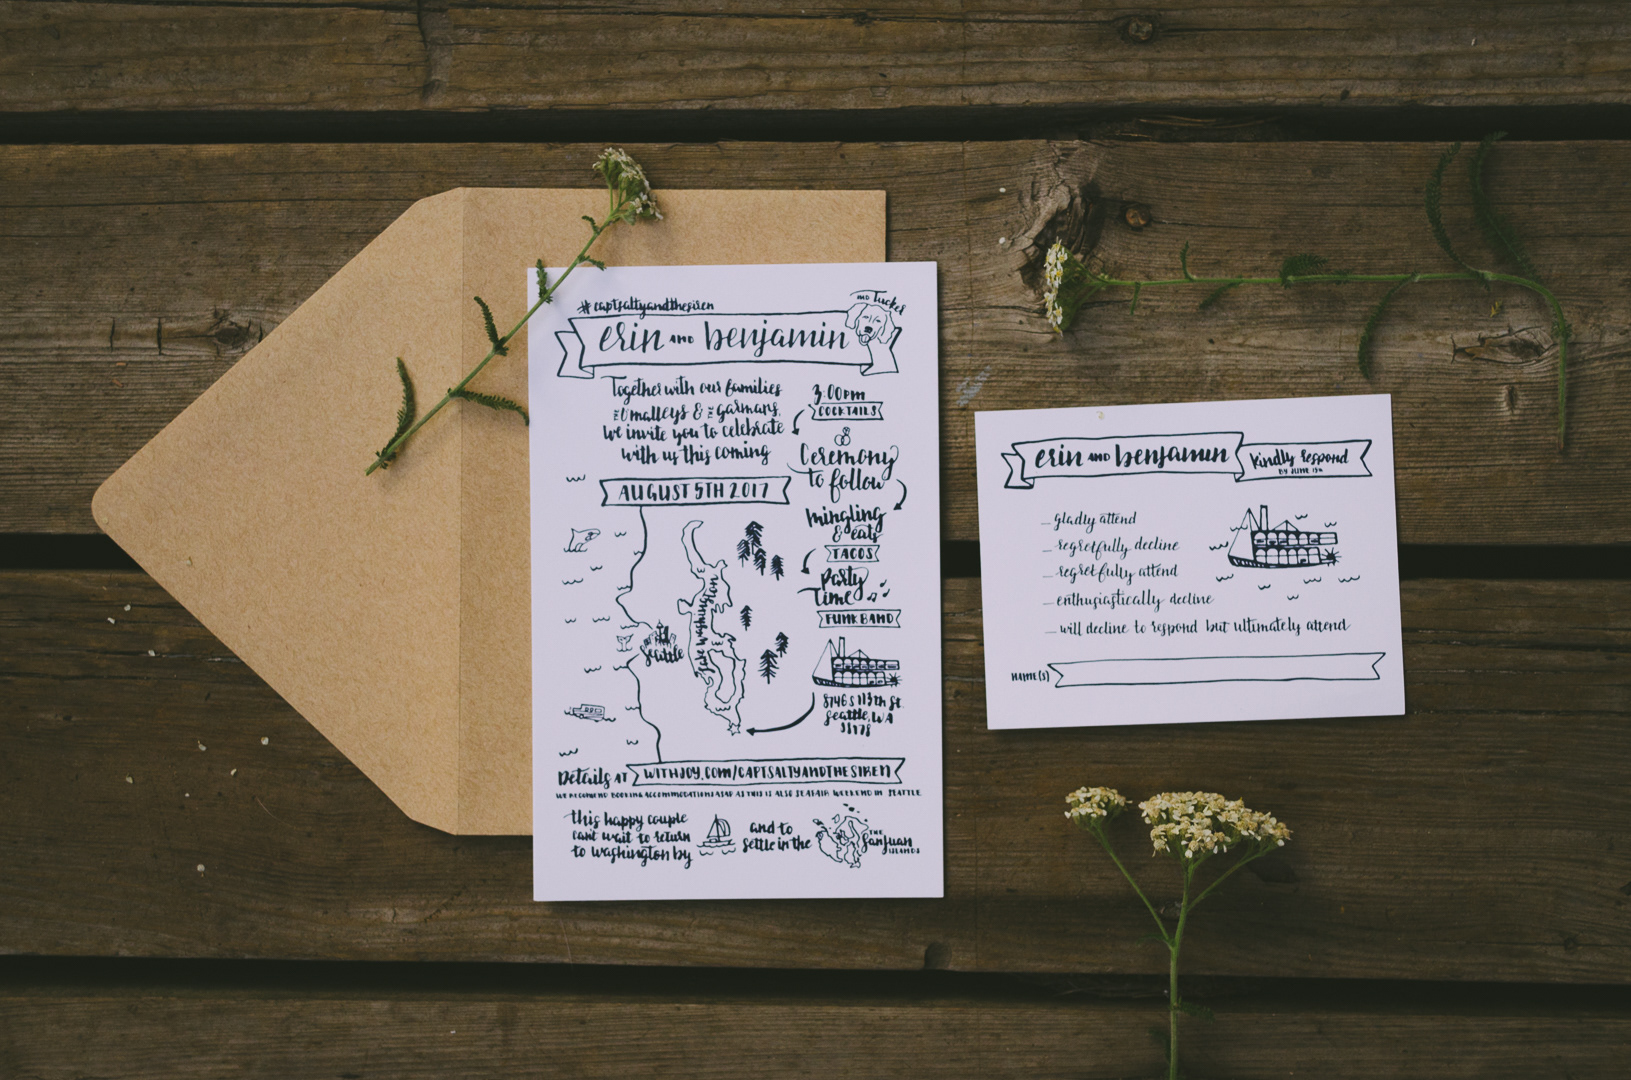 #captsaltyandthesiren
and Tucker
erin and benjamin
Together with our families
the O'malleys & the garmans,
we invite you to celebrate
with us this coming
AUGUST 5TH 2017
3:00PM
COCKTAILS
Ceremony
to follow
mingling
& eats
TACOS
party
time
FUNK BAND
Seattle
Lake Washington
8746 S 113th St
Seattle, WA
98178
Details at WITHJOY.COM/CAPTSALTYANDTHESIREN
WE RECOMEND BOOKING ACCOMMODATIONS ASAP AS THIS IS ALSO SEAFAIR WEEKEND IN SEATTLE
this happy couple
cant wait to return
to washington by
and to
settle in the
THE
San Juan
ISLANDS
erin and benjamin
kindly respond
BY JUNE
_ gladly attend
_ regretfully decline
_ regretfully attend
_ enthusiastically decline
_ will decline to respond but ultimately attend
NAME(S)